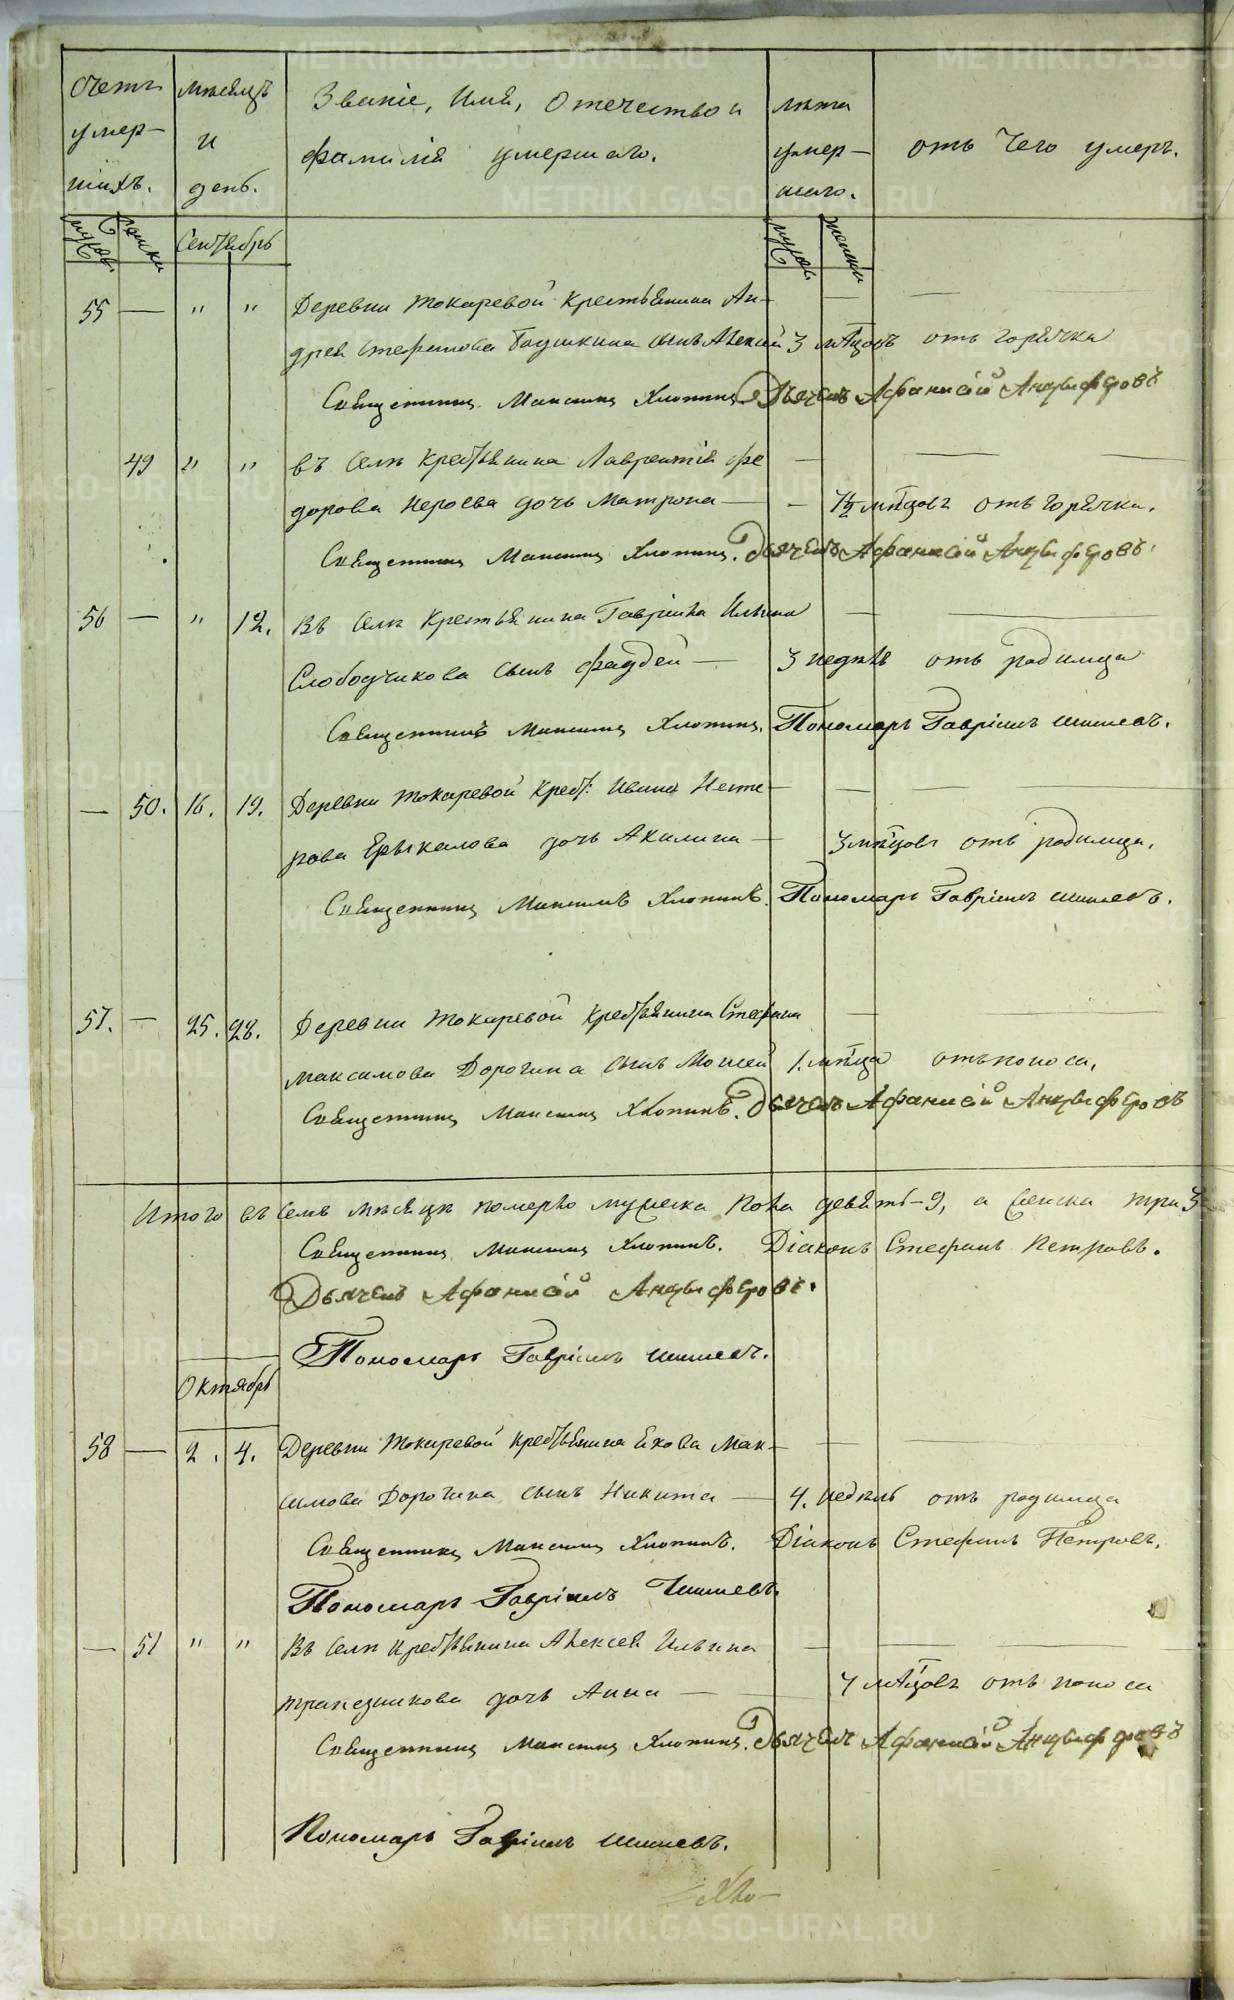 Счетъ умер- шихъ.
мѣсяцъ и день.
Званіе, Имя, Отечество и фамилія умершаго.
лѣта умер- шаго.
отъ Чего умеръ.
мужск. женски Сентябрь мужск женски
55 — " " Деревни Токаревой Крестьянина Ан-
дрея Стефанова сынъ Алексѣй 3 мѣсцовъ отъ горячки
Священникъ Максимъ Хлопинъ Дьячекъ Афанасій Анцыферовъ
49 " " въ Селѣ Крестьянина Лаврентія Фе
дорова дочь Матрона — - 1½ мѣсцовъ отъ горячки.
Священникъ Максимъ Хлопинъ. Дьячекъ Афанасій Анцыферовъ.
56 — " 12. Въ Селѣ Крестьянина Гавріила Ильина
Слободчикова сынъ Фаддей — 3 недѣль отъ родимца
Священникъ Максимъ Хлопинъ. Пономарь Гавріилъ Шишевъ.
— 50. 16. 19. Деревни Токаревой Крест: Ивана Несте-
рова дочь Акилина — 3 мѣсцовъ отъ родимца.
Священникъ Максимъ Хлопинъ. Пономарь Гавріилъ Шишевъ.
57. — 25. 28. Деревни Токаревой Крестьянина Стефана
Максимова Дорогина сынъ Моисей 1. мѣсца отъ поноса.
Священникъ Максимъ Хлопинъ. Дьячекъ Афанасій Анцыферовъ
Итого въ семъ мѣсяцѣ померло мужеска пола девять-9, а женска три 3
Священникъ Максимъ Хлопинъ. Діаконъ Стефанъ Петровъ.
Дьячекъ Афанасій Анцыферовъ.
Пономарь Гавріилъ Шишевъ.
Октябрь
58 — 2. 4. Деревни Токаревой Крестьянина Якова Мак-
симова Дорогина сынъ Никита — 4. недѣль отъ родимца
Священникъ Максимъ Хлопинъ. Діаконъ Стефанъ Петровъ.
Пономарь Гавріилъ Шишевъ
— 51 " " Въ Селѣ Крестьянина Алексея Ильина
Трапезникова дочь Анна — 4 мѣсцовъ отъ поноса
Священникъ Максимъ Хлопинъ. Дьячекъ Афанасій Анцыферовъ
Пономарь Гавріилъ Шишевъ.
Хло-
METRIKI.GASO-URAL.RU